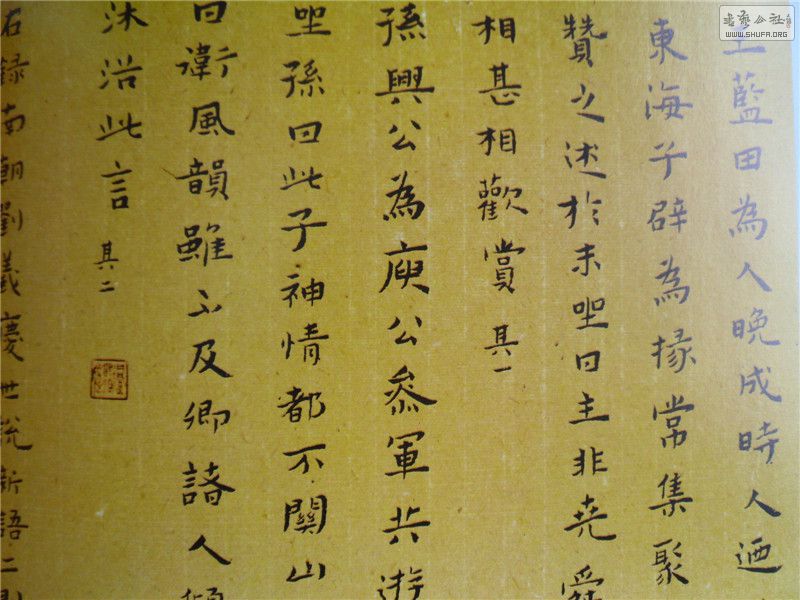 王藍田為人晚成時人迺
東海子辟為掾常集聚
贊之述於末坐曰主非堯舜
相甚相歡賞 其一
孫興公為庾公參軍共遊
坐孫曰此子神情都不關山
曰衛風韻雖不及卿諸人傾
沐浴此言 其二
右録南朝劉義慶世說新語二則
書藝公社
WWW.SHUFA.ORG